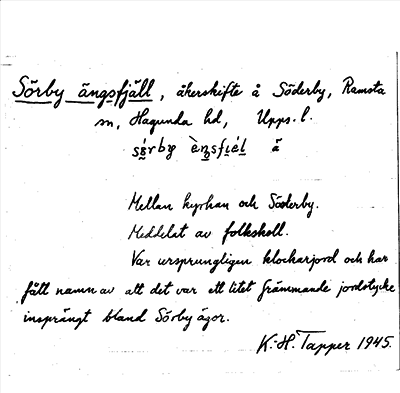 Sörby ängsfjäll, åkerskifte å Söderby, Ramsta
sn, Hagunda hd, Upps. l.
Mellan kyrkan och Söderby.
Meddelat av folkskoll.
Var ursprungligen klockarjord och har
fått namn av att det var ett litet främmande jordstycke
insprängt bland Sörby ägor.
K.-H. Tapper 1945.